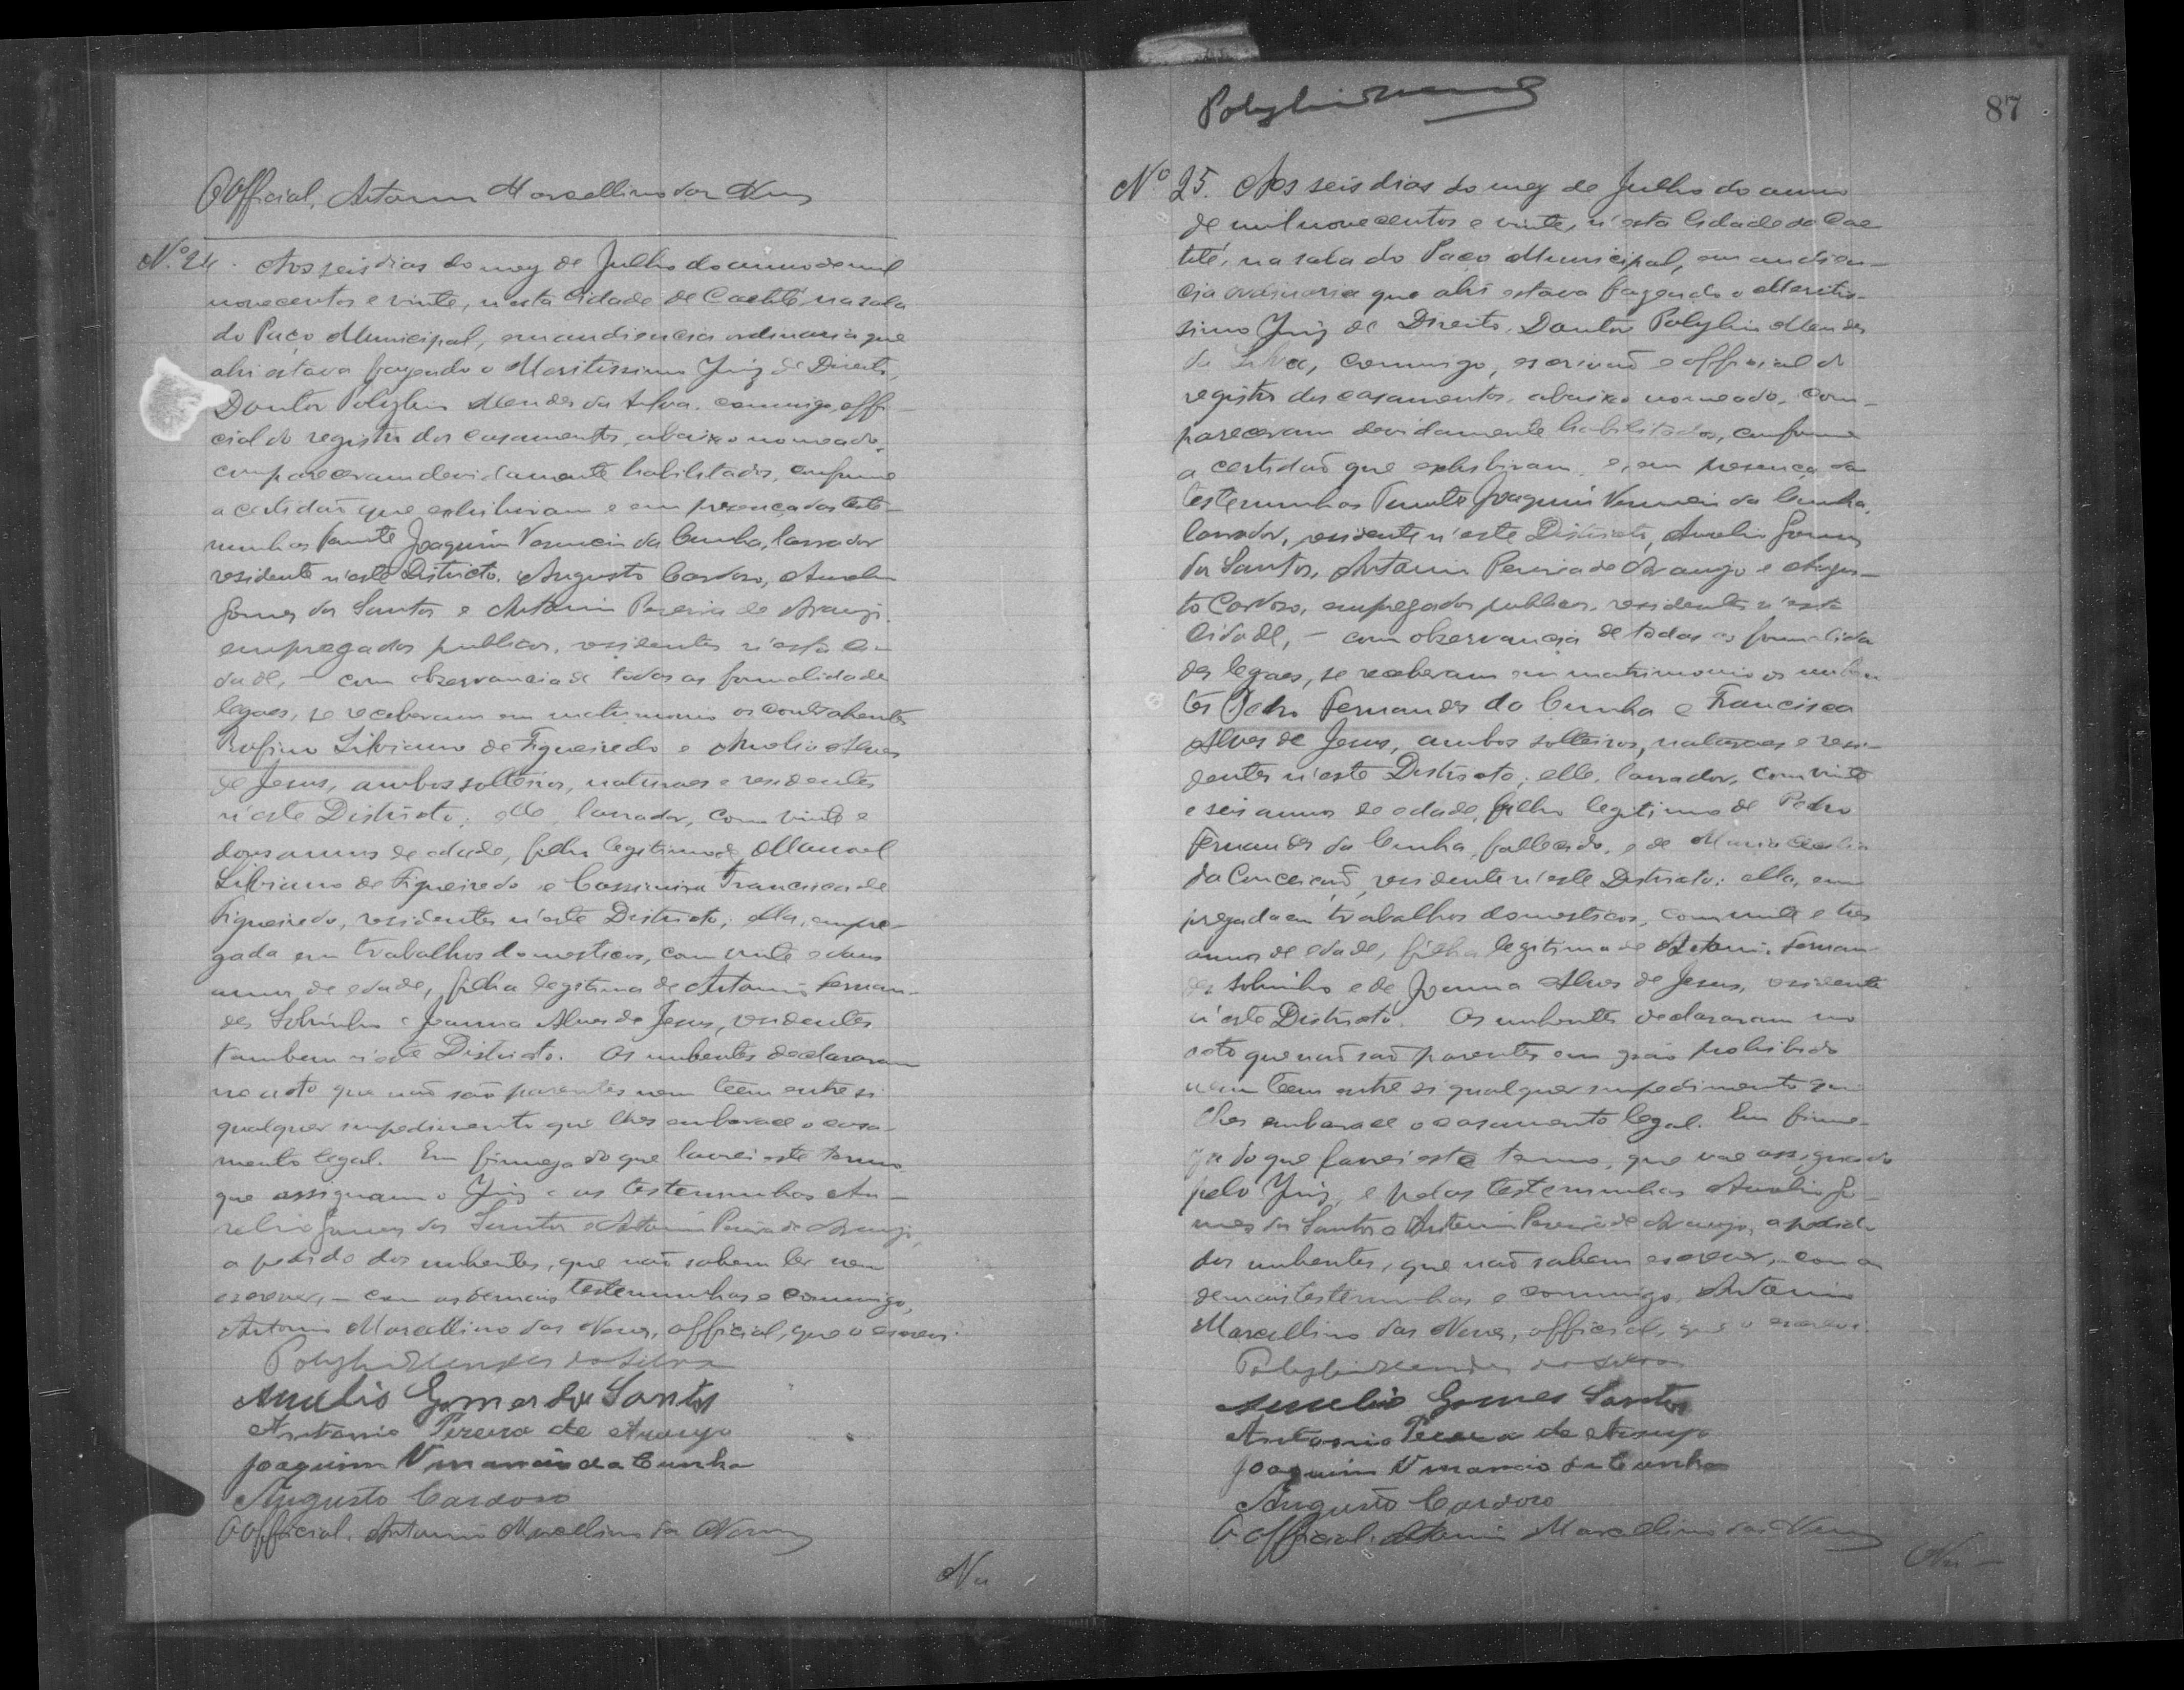 O Official, Antonio Marcellino das Neves
Nº 24. Aos seis dias do mez de Julho do anno de mil
novecentos e vinte, n'esta Cidade de Caetité, na sala
do Paço Municipal, em audiencia ordinaria que
ahi estava fazendo o Meritissimo Juiz de Direito,
Doutor Polybio Mendes da Silva, commigo, offi-
cial do registro dos casamentos, abaixo nomeado,
compareceram devidamente habilitados, conforme
a certidão que exhibiram e em presença das teste-
munhas Tenente Joaquim Venancio da Cunha, lavrador
residente n'este Districto, Augusto Cardoso, Aurelio
Gomes dos Santos e Antonio Pereira de Araujo,
empregados publicos, residentes n'esta Ci-
dade, - com observancia de todas as formalidades
legaes, se receberam em matrimonio os contrahentes
Rufino Libiano de Figueiredo e Amelia Alves
de Jesus, ambos solteiros, naturaes e residentes
n'este Districto; elle, lavrador, com vinte e
dous annos de edade, filho legitimo de Manoel
Libiano de Figueiredo e Cassimira Francisca de
Figueiredo, residentes n'este Districto; ella, empre-
gada em trabalhos domesticos, com vinte e dous
annos de edade, filha legitima de Antonio Fernan-
des Sobrinho e Joanna Alves de Jesus, residentes
tambem n'este Districto. Os nubentes declararam
no acto que não são parentes nem teem entre si
qualquer impedimento que lhes embarace o casa-
mento legal. Em firmeza do que lavrei este termo,
que assignam o Juiz e as testemunhas Au-
relio Gomes dos Santos e Antonio Pereira de Araujo,
a pedido dos nubentes, que não sabem ler nem
escrever, - com as demais testemunhas e commigo,
Antonio Marcellino das Neves, official, que o escrevi.
Polybio Mendes da Silva
Aurelio Gomes dos Santos
Antonio Pereira de Araujo
Joaquim Venancio da Cunha
Augusto Cardoso
O Official, Antonio Marcellino das Neves
87
Nº 25. Aos seis dias do mez de Julho do anno
de mil novecentos e vinte, n'esta Cidade de Cae-
tité, na sala do Paço Municipal, em audien-
cia ordinaria que ahi estava fazendo o Meritis-
simo Juiz de Direito, Doutor Polybio Mendes
da Silva, commigo, escrivão e official do
registro dos casamentos, abaixo nomeado, com-
pareceram devidamente habilitados, conforme
a certidão que exhibiram, e, em presença das
testemunhas Tenente Joaquim Venancio da Cunha,
lavrador, residente n'este Districto, Aurelio Gomes
dos Santos, Antonio Pereira de Araujo e Augus-
to Cardoso, empregados publicos, residentes n'esta
Cidade, - com observancia de todas as formalida-
des legaes, se receberam em matrimonio os nuben-
tes Pedro Fernandes da Cunha e Francisca
Alves de Jesus, ambos solteiros, naturaes e resi-
dentes n'este Districto; elle, lavrador, com vinte
e seis annos de edade, filho legitimo de Pedro
Fernandes da Cunha, fallecido, e de Maria
da Conceição, residente n'este Districto; ella, em-
pregada em trabalhos domesticos, com vinte e tres
annos de edade, filha legitima de Antonio Fernan-
des Sobrinho e de Joanna Alves de Jesus, residentes
n'este Districto. Os nubentes declararam no
acto que não são parentes em gráo prohibido
nem teem entre si qualquer impedimento que
lhes embarace o casamento legal. Em firme-
za do que lavrei este termo, que vae assignado
pelo Juiz, e pelas testemunhas Aurelio Go-
mes dos Santos e Antonio Pereira de Araujo, a pedido
dos nubentes, que não sabem escrever, - com as
demais testemunhas e commigo, Antonio
Marcellino das Neves, official, que o escrevi.
Polybio Mendes da Silva
Aurelio Gomes Santos
Antonio Pereira de Araujo
Joaquim Venancio da Cunha
Augusto Cardoso
O Official, Antonio Marcellino das Neves